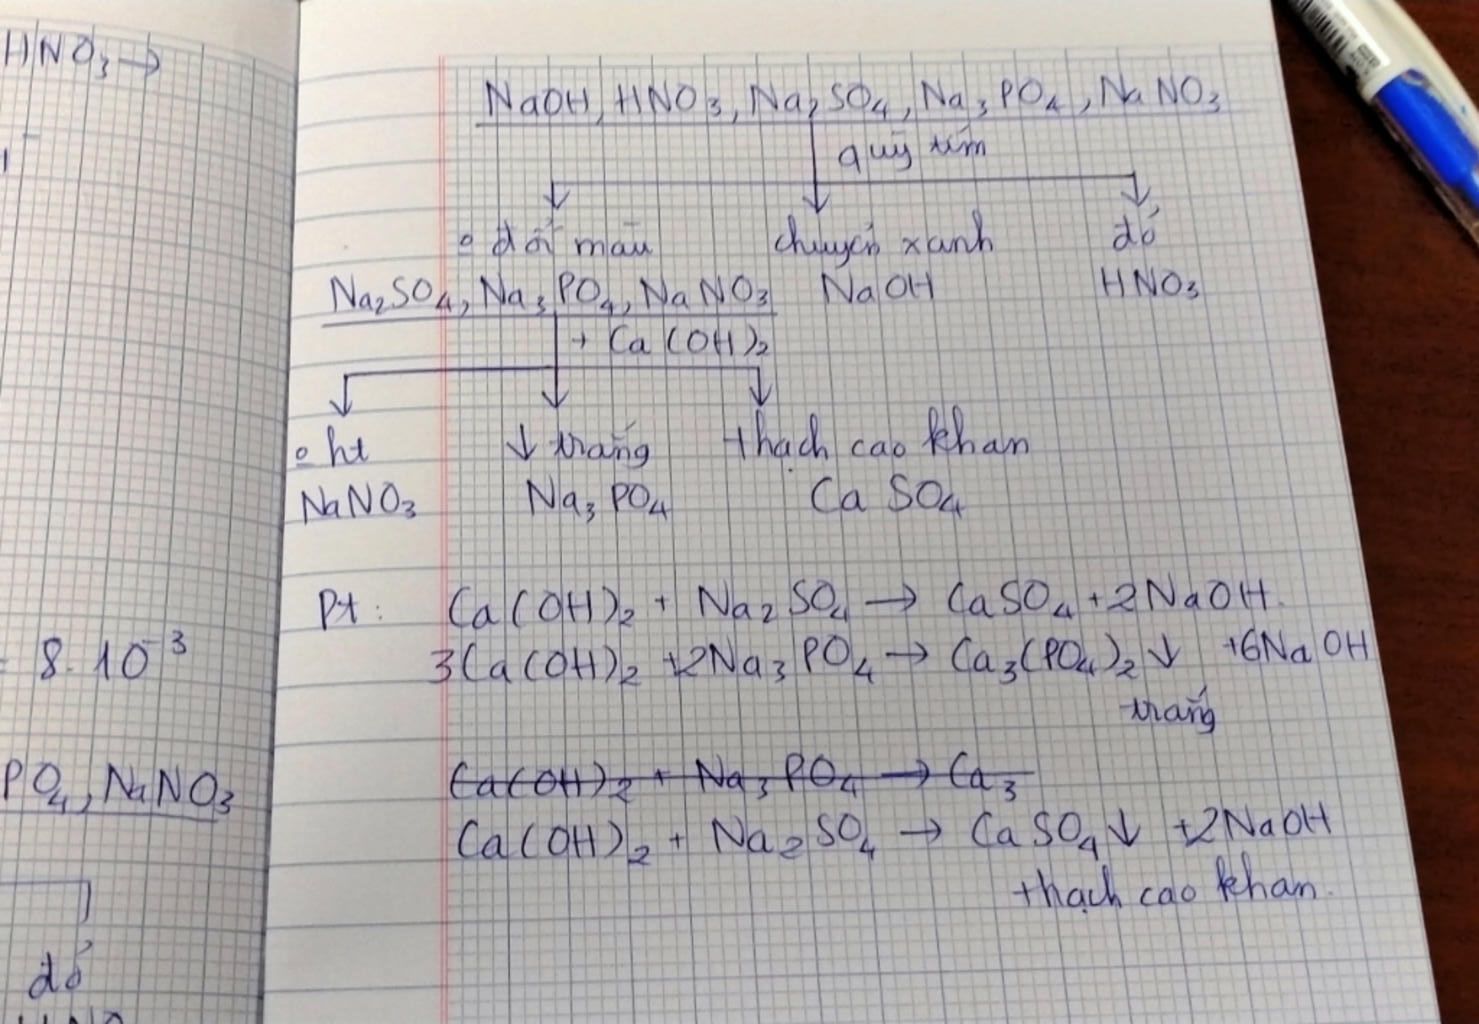 HNO₃ →
= 8.10⁻³
PO₄, NaNO₃
đỏ
NaOH, HNO₃, Na₂SO₄, Na₃PO₄, NaNO₃
quỳ tím
o đổi màu chuyển xanh đỏ
Na₂SO₄, Na₃PO₄, NaNO₃ NaOH HNO₃
+ Ca(OH)₂
o ht ↓ trắng thạch cao khan
NaNO₃ Na₃PO₄ CaSO₄
Pt: Ca(OH)₂ + Na₂SO₄ → CaSO₄ + 2NaOH.
3Ca(OH)₂ + 2Na₃PO₄ → Ca₃(PO₄)₂ ↓ + 6NaOH
trắng
Ca(OH)₂ + Na₃PO₄ → Ca₃
Ca(OH)₂ + Na₂SO₄ → CaSO₄ ↓ + 2NaOH
thạch cao khan.